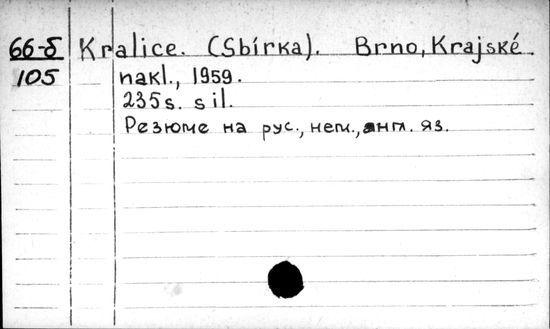 66-5 Kralice. (Sbírka). Brno, Krajské
105 nakl., 1959.
235s. s il.
Резюме на рус., нем., англ. яз.